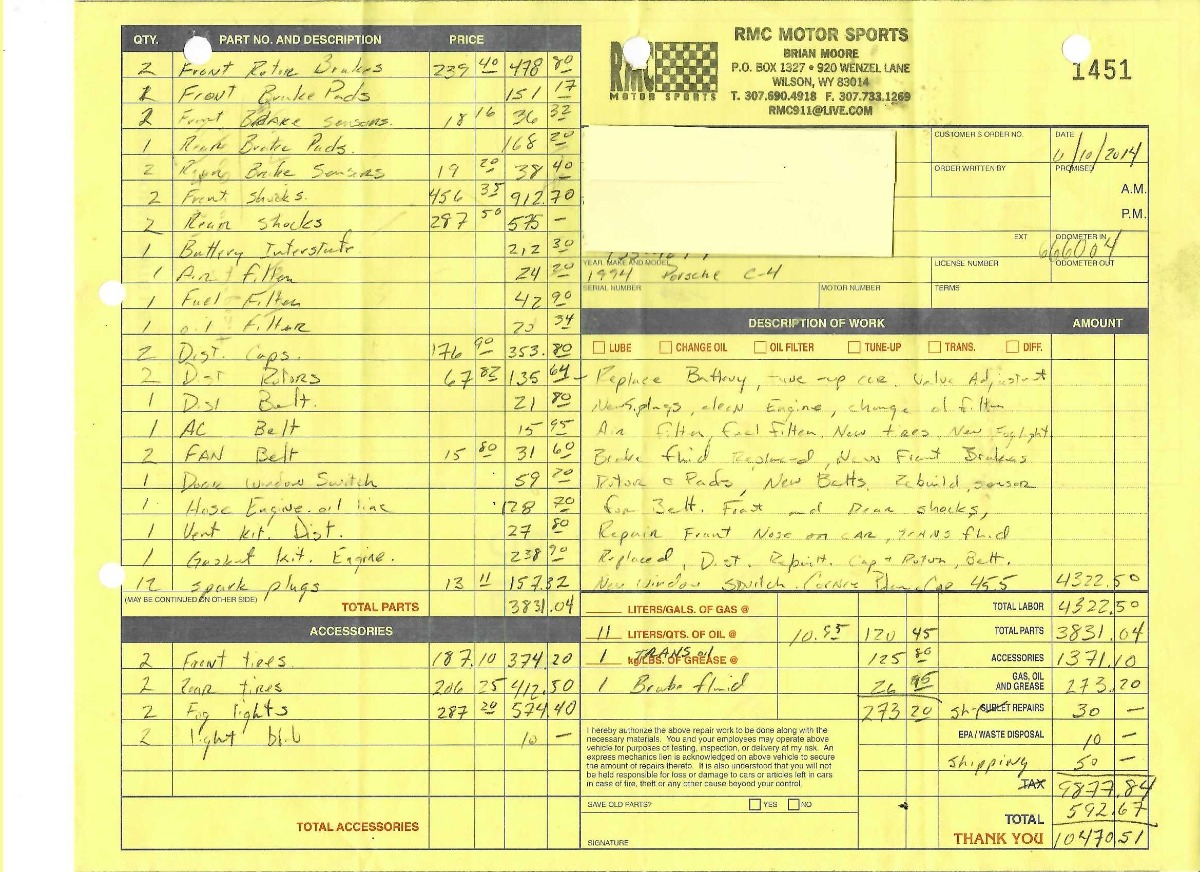 QTY. PART NO. AND DESCRIPTION PRICE
2 Front Rotor Brakes 239 40 478 80
1 Front Brake Pads 151 17
2 Front BRAKE sensors. 18 16 36 32
1 Rear Brake Pads. 168 20
2 Rear Brake Sensors 19 20 38 40
2 Front Shocks. 456 35 912.70
2 Rear shocks 287 50 575 —
1 Battery Interstate 212 30
1 Air filter 24 20
1 Fuel Filter 42 90
1 oil Filter 23 34
2 Dist. Caps. 176 90 353. 80
2 Dist Rotors 67 82 135 64
1 Dist Belt. 21 80
1 AC Belt 15 95
2 FAN Belt 15 80 31 60
1 Door window Switch 59 20
1 Hose Engine. oil line 128 70
1 Vent kit. Dist. 27 80
1 Gasket kit. Engine. 238 90
12 spark plugs 13 11 157.32
(MAY BE CONTINUED ON OTHER SIDE) TOTAL PARTS 3831.04
ACCESSORIES
2 Front tires 187.10 374.20
2 rear tires 206 25 412.50
2 Fog lights 287 20 574.40
2 light 10 —
TOTAL ACCESSORIES
RMC
MOTOR SPORTS
RMC MOTOR SPORTS
BRIAN MOORE
P.O. BOX 1327 • 920 WENZEL LANE
WILSON, WY 83014
T. 307.690.4918 F. 307.733.1269
RMC911@LIVE.COM
1451
CUSTOMER'S ORDER NO. DATE
/10/2014
ORDER WRITTEN BY PROMISED
A.M.
P.M.
EXT ODOMETER IN
66004
YEAR, MAKE AND MODEL LICENSE NUMBER ODOMETER OUT
1994 Porsche C-4
SERIAL NUMBER MOTOR NUMBER TERMS
DESCRIPTION OF WORK AMOUNT
LUBE CHANGE OIL OIL FILTER TUNE-UP TRANS. DIFF.
Replace Battery, tune-up car. Valve Adjust
New s.plugs, clean Engine, change oil filter
Air filter, fuel filter. New tires. New Foglight
Brake fluid Replaced, New Front Brakes
Rotor & Pads, New Belts. Rebuild, sensor
for Belt. Front and Rear shocks,
Repair Front Nose on CAR, TRANS fluid
Replaced, Dist. Rebuilt. Cap + Rotor, Belt.
New window switch. Cap 45.5 4322.50
LITERS/GALS. OF GAS @ TOTAL LABOR 4322.50
11 LITERS/QTS. OF OIL @ 10.95 120 45 TOTAL PARTS 3831.04
1 TRANS oil kg/LBS. OF GREASE @ 125 80 ACCESSORIES 1371.10
1 Brake fluid 26 95 GAS, OIL AND GREASE 273.20
273 20 SUBLET REPAIRS 30 —
EPA / WASTE DISPOSAL 10 —
shipping 50 —
I hereby authorize the above repair work to be done along with the
necessary materials. You and your employees may operate above
vehicle for purposes of testing, inspection, or delivery at my risk. An
express mechanics lien is acknowledged on above vehicle to secure
the amount of repairs thereto. It is also understood that you will not
be held responsible for loss or damage to cars or articles left in cars
in case of fire, theft or any other cause beyond your control.
TAX 9877.84
SAVE OLD PARTS? YES NO
592.67
TOTAL
SIGNATURE
THANK YOU 10470.51